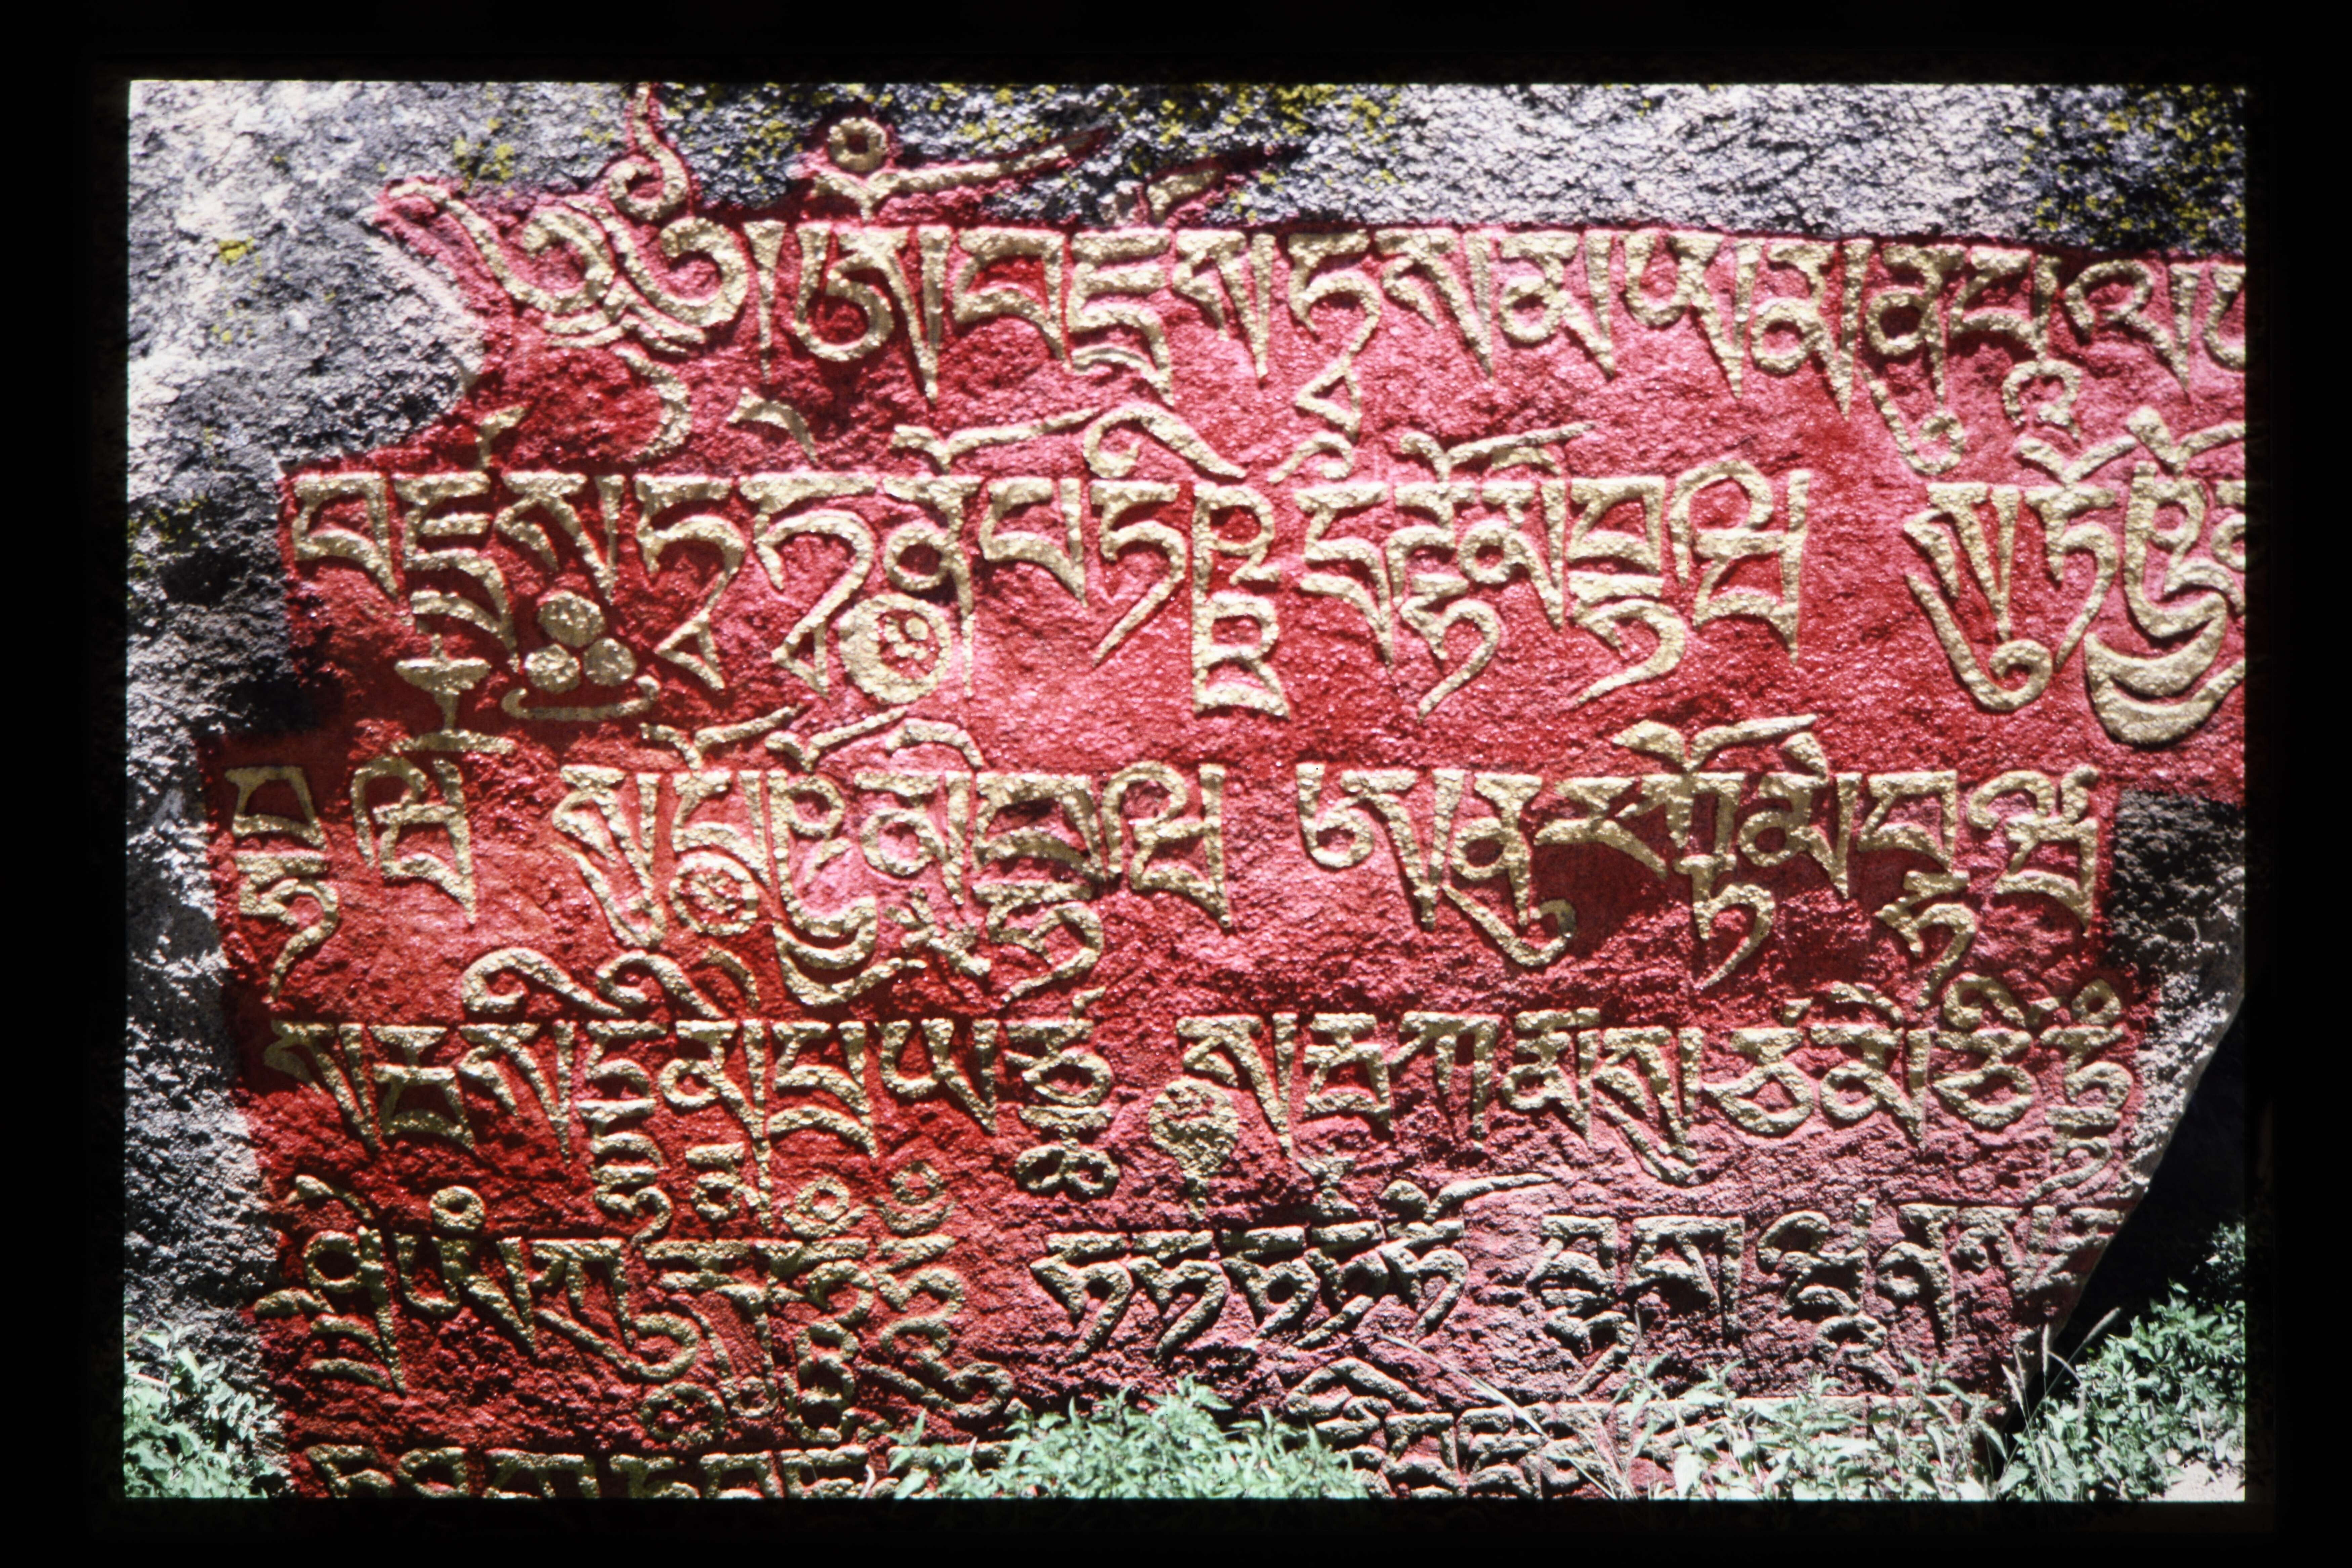 ༄༅།ཨོཾབཛྲསཏྭསམཡམནུཔཱལཡ
བཛྲསཏྭཏྭེནོཔཏིཥྛདྲྀཌྷོམེབྷཝ སུཏོཥྱོམེ
བྷཝ སུཔོཥྱོམེབྷཝ ཨནུརཀྟོམེབྷཝ
སརྦསིདྡྷིམེཔྲཡཙྪ སརྦཀརྨསུཙམེཙིཏྟཾ
ཤྲཱིཡཾཀུརུཧཱུྃ ཧཧཧཧཧོ བྷགཝན